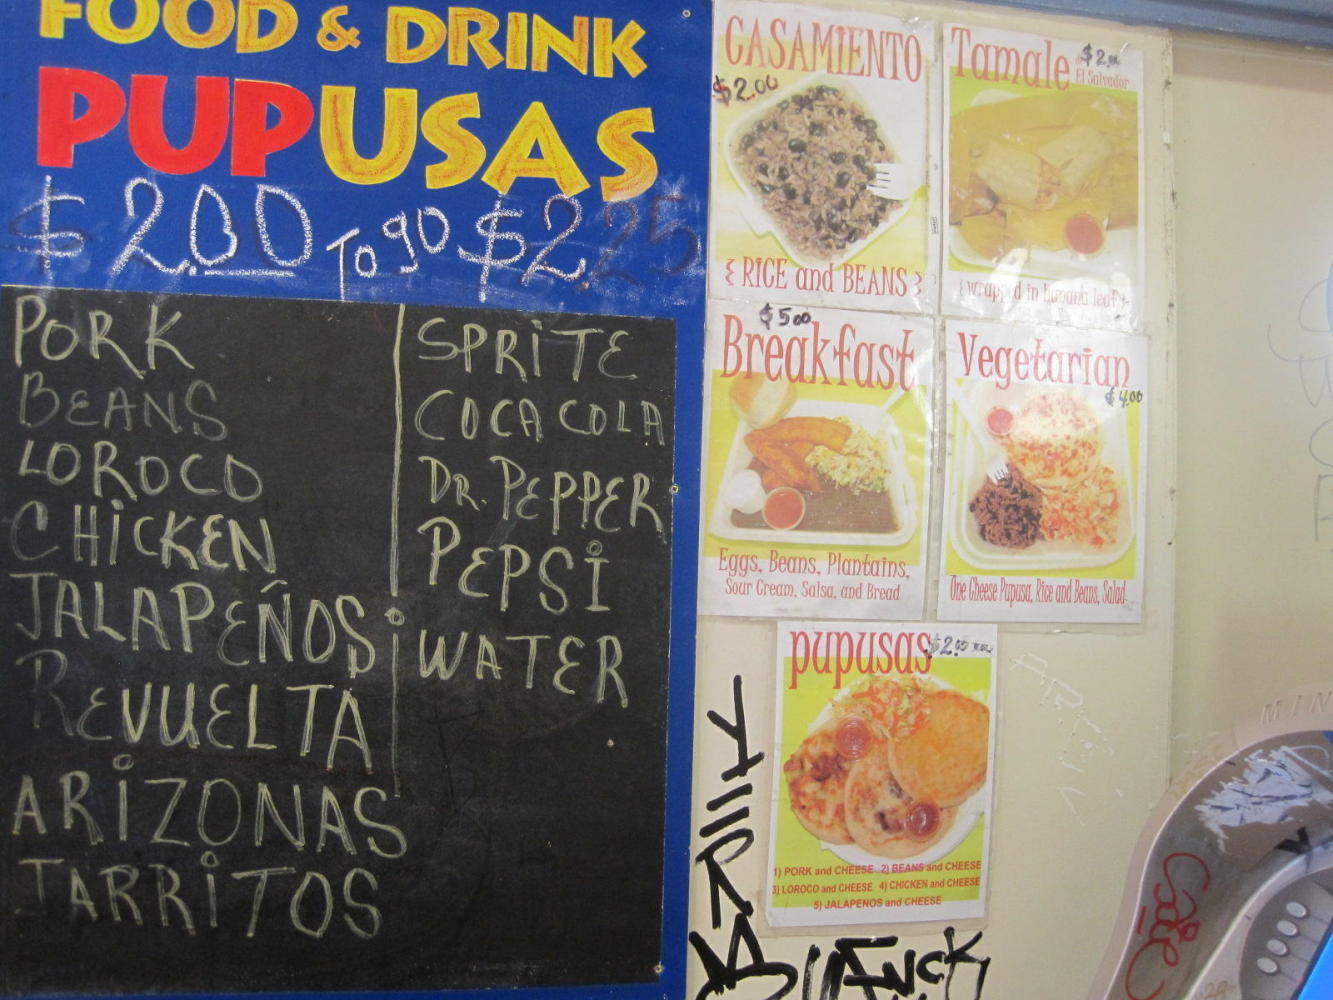 FOOD & DRINK
PUPUSAS
$2.00 To go $2.25
PORK
BEANS
LOROCO
CHiCKEN
JALAPEÑOS
REVUELTA
ARiZONAS
JARRiTOS
SPRiTE
COCA COLA
DR. PEPPER
PEPSi
WATER
CASAMIENTO
$2.00
{ RICE and BEANS }
Tamale $2.00
El Salvador
{wrapped in banana leaf}
$5.00
Breakfast
Eggs, Beans, Plantains,
Sour Cream, Salsa, and Bread
Vegetarian
$4.00
One Cheese Pupusa, Rice and Beans, Salad
pupusas $2.00
1) PORK and CHEESE 2) BEANS and CHEESE
3) LOROCO and CHEESE 4) CHICKEN and CHEESE
5) JALAPENOS and CHEESE